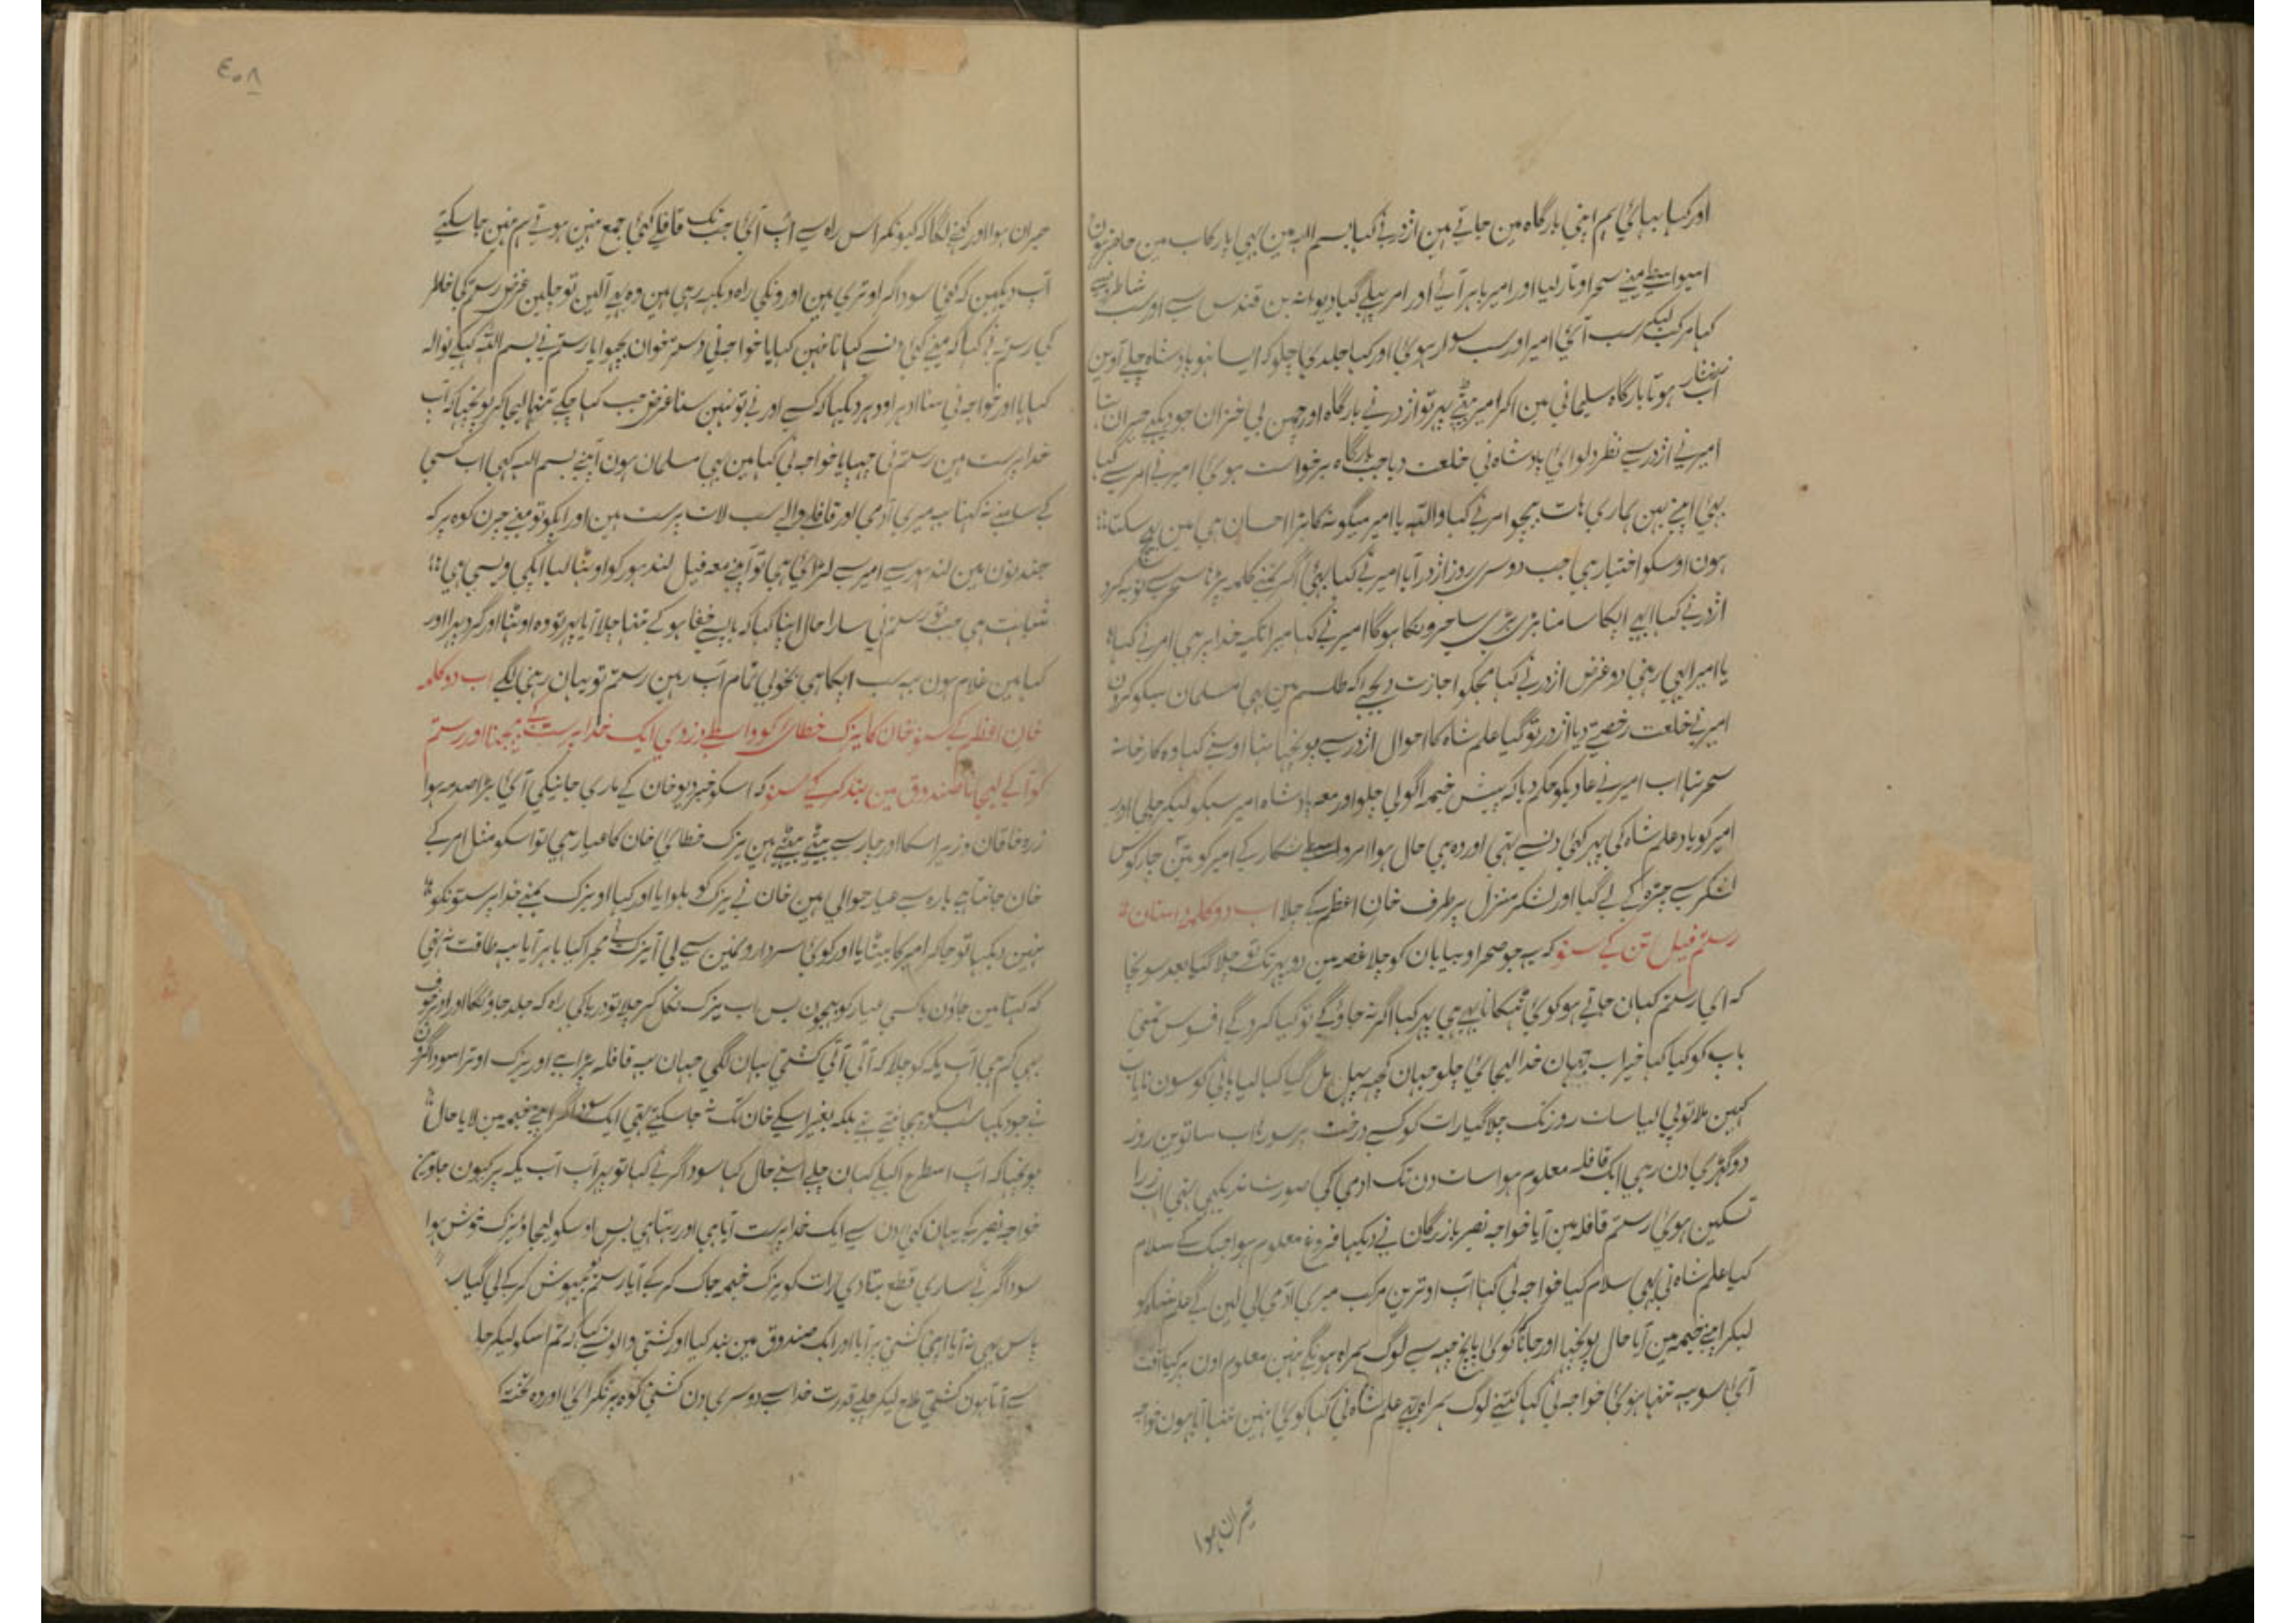 اور کہا بہائی ہم اپنی بارگاہ مین جاتے ہین اژدر نے کہا بسم اللہ مین بہی یا رکاب مین حاضر ہون
اسیواسطے مینے سحر اوتار لیا اور امیر باہر آئے اور امر پہلے گیا دیوانہ بن قندس سے اور سب شاطرونسے
کہا مرکب لیکے سب آئے امیر اور سب سوار ہوئی اور کہا جلدی جاچلو کہ ایسا نہو بادشاہ چلے آوین
اب ہوتا بارگاہ سلیمانی مین اکر امیر بیٹھے پہر تو اژدر نے بارگاہ اور چمن بی خزان جو دیکھے حیران تہا
امیر نے اژدر سے نظر دلوائی بادشاہ نی خلعت دیا جب بارگاہ برخواست ہوئی امیر نے امر سے کہا
بہئی اپنے بہین ہماری بات بیچو امر نے کہا واللہ یا امیر میگونہ کا بڑا احسان ہی مین بیچ سکتا
ہون اوسکو اختیار ہی جب دوسری روز اژدر آیا امیر نے کہا بہئی اگر تمنے کلمہ پڑہا سحر سے توبہ کرو
اژدر نے کہا ابہے اپکا سامنا بڑی بڑی ساحرونکا ہوگا امیر نے کہا میرا تکیہ خدا پر ہی امر نے کہا
یا امیر ابہی رہنی دو غرض اژدر نے کہا مجکو اجازت دیجئے کہ طلسم مین اہی مسلمان سبکو کرون
امیر نے خلعت رخصتے دیا اژدر تو گیا علمشاہ کا احوال اژدر سے پونچہا تہا اوسنے کہا وہ کارخانہ
سحر تہا اب امیر نے عادیکو حکم دیا کہ پیش خیمہ اگولی چلو اور معہ بادشاہ امیر سبکو لیکر چلے اور
امیر کو یاد علمشاہ کی پہر کوئی دنسے نتہی اور وہ ہی حال ہوا امر واسطے شکار کے امیر کو تین چار کوس
لشکر سے جترہ کے لے گیا اور لشکر منزل پر طرف خان اعظم کے چلا اب دو کلمہ داستان
رستم فیل تن کے سنو کہ یہ جو صحرا و بیابان کو چلا غصہ مین دوپہر تک تو چلا گیا بعد سونچا
کہ ای رستم کہان جاتے ہو کوئی ٹہکانا بہے ہی پہر کہا اگر نہ جاوگے تو کیا کروگے افسوس تمنی
باپ کو کیا کہا خیر اب جہان خدا لیجائی چلو جہان کچہہ پہل مل گیا کہا لیا پانی کوسون نایاب
کہین ملا تو پی لیا سات روز تک چلا گیا رات کو کسے درخت پر سورہا ساتوین روز
دو گہڑی دن رہی ایک قافلہ معلوم ہوا سات دن تک ادمی کی صورت نہ دیکہی تہی اب زرا
تسکین ہوئی رستم قافلہ مین آیا خواجہ نصیر بازرگان نے دیکہا فروغ معلوم ہوا جہک کے سلام
کیا علمشاہ نی بہی سلام کیا خواجہ نی کہا اپ اوترین مرکب میری ادمی لی لین گے علمشاہ کو
لیکر اپنے خیمہ مین آیا حال پونچہا اور جانا کوئی پانچ چہہ سے لوگ ہمراہ ہونگے نہین معلوم اون پر کیا آفت
آئی سو یہ تنہا ہوئی خواجہ نی کہا کتنے لوگ ہمراہ تہے علمشاہ نی کہا کوئی نہین تنہا آیا ہون خواجہ
حیران ہوا
٤٠٨
حیران ہوا اور کہنے لگا کہ کیونکر اس راہ سے اپ آئی جب تک قافلے کئی جمع نہین ہوتے ہم نہین جا سکتے
آپ دیکہین کہ کئی سوداگر اوتری ہین اور ونکی راہ دیکہہ رہی ہین وہ بہے آلین تو چلین غرض رستم کی خاطر
کی رستم نے کہا کہ مینے کئی دنسے کہانا نہین کہایا خواجہ نی دسترخوان بچہوایا رستم نے بسم اللہ کہکے نوالہ
کہایا اور خواجہ نی سنا ادہر اودہر دیکہا کہ کسے اور نے تو نہین سنا غرض جب کہا چکے تنہا لیجا کر پونچہا کہ آپ
خداپرست ہین رستم نی چہپایا خواجہ نی کہا مین بہی مسلمان ہون آپنے بسم اللہ کہی اب کسی
کے سامنے نہ کہنا یہ میری آدمی اور قافلہ والے سب لات پرست ہین اور اپکو تو مینے جبرن کوہ پر کہ
جندنون مین لندہور سے امیر سے لڑائی ہی تو آپنے معہ فیل لندہور کو اوٹہا لیا اپکی ویسی ہی
شباہت ہی جب تو رستم نی سارا حال اپنا کہا کہ باپسے خفا ہو کے تنہا چلا آیا پہر تو وہ اوٹہا اور گرد پہرا اور
کہا مین غلام ہون یہ سب اپکا ہی بخوبی تمام آپ رہین رستم تو یہان رہنی لگے اب دو کلمہ
خان اعظم کے سنو خان کا یزک خطائی کو واسطے دزدی ایک خداپرست کے بہیجنا اور رستم
کو آکے لیجانا صندوق مین بند کرکے سنو کہ اسکو خبر دیوخان کے ماری جانیکی آئی بڑا صدمہ ہوا
زرہ خاقان وزیر اسکا اور چار سے بیٹے بیٹھے ہین یزک خطائی خان کا عیار ہی تو اسکو مثل امر کے
خان جانتا ہے بارہ سے عیار حوالی ہین خان نے یزک کو بلوایا اور کہا او یزک ہمنے خداپرستونکو
نہین دیکہا تو جاکر امیر کا بیٹا یا اور کوئی سردار ونمین سے لی آ یزک نے مجرا کیا باہر آیا یہ طاقت نہ تہی
کہ کہتا مین جاؤن یا کسی عیار کو بہیجون بس اب یزک نکل کر چلا تو دریا کی راہ کہ جلد جاؤنگا اور ادہر خوف
بہی کم ہی اب یکہ کو چلا کہ آتی آتی کشتی یہان لگی جہان یہ قافلہ پڑا ہے اور یزک اوترا سوداگرون
نے جو دیکہا سب اسکو پہچانتے تہے بلکہ بغیر اسکے خان تک نہ جا سکتے تہی ایک سوداگر اپنے خیمہ مین لایا حال
پونچہا کہ آپ اسطرح اکیلے کہان چلے اسنے حال کہا سوداگر نے کہا تو پہر اپ اب یکہ پر کیون جاوین
خواجہ نصیر کے یہان کئی دن سے ایک خداپرست آیا ہی اور رہتا ہی بس اوسکو لیجاو یزک خوش ہوا
سوداگر نے ساری قطع بتا دی رات کو یزک خیمہ چاک کرکے آیا رستم کو بیہوش کرکے لی گیا
پاس بہی نہ آیا اپنی کشتی پر آیا اور ایک صندوق مین بند کیا اور کشتی والونسے کہا کہ تم اسکو لیکر چلو
سے آتا ہون کشتی ملاح لیکر چلے قدرت خدا سے دوسری دن کشتی کوہ پر ٹکرائی اور وہ تختہ